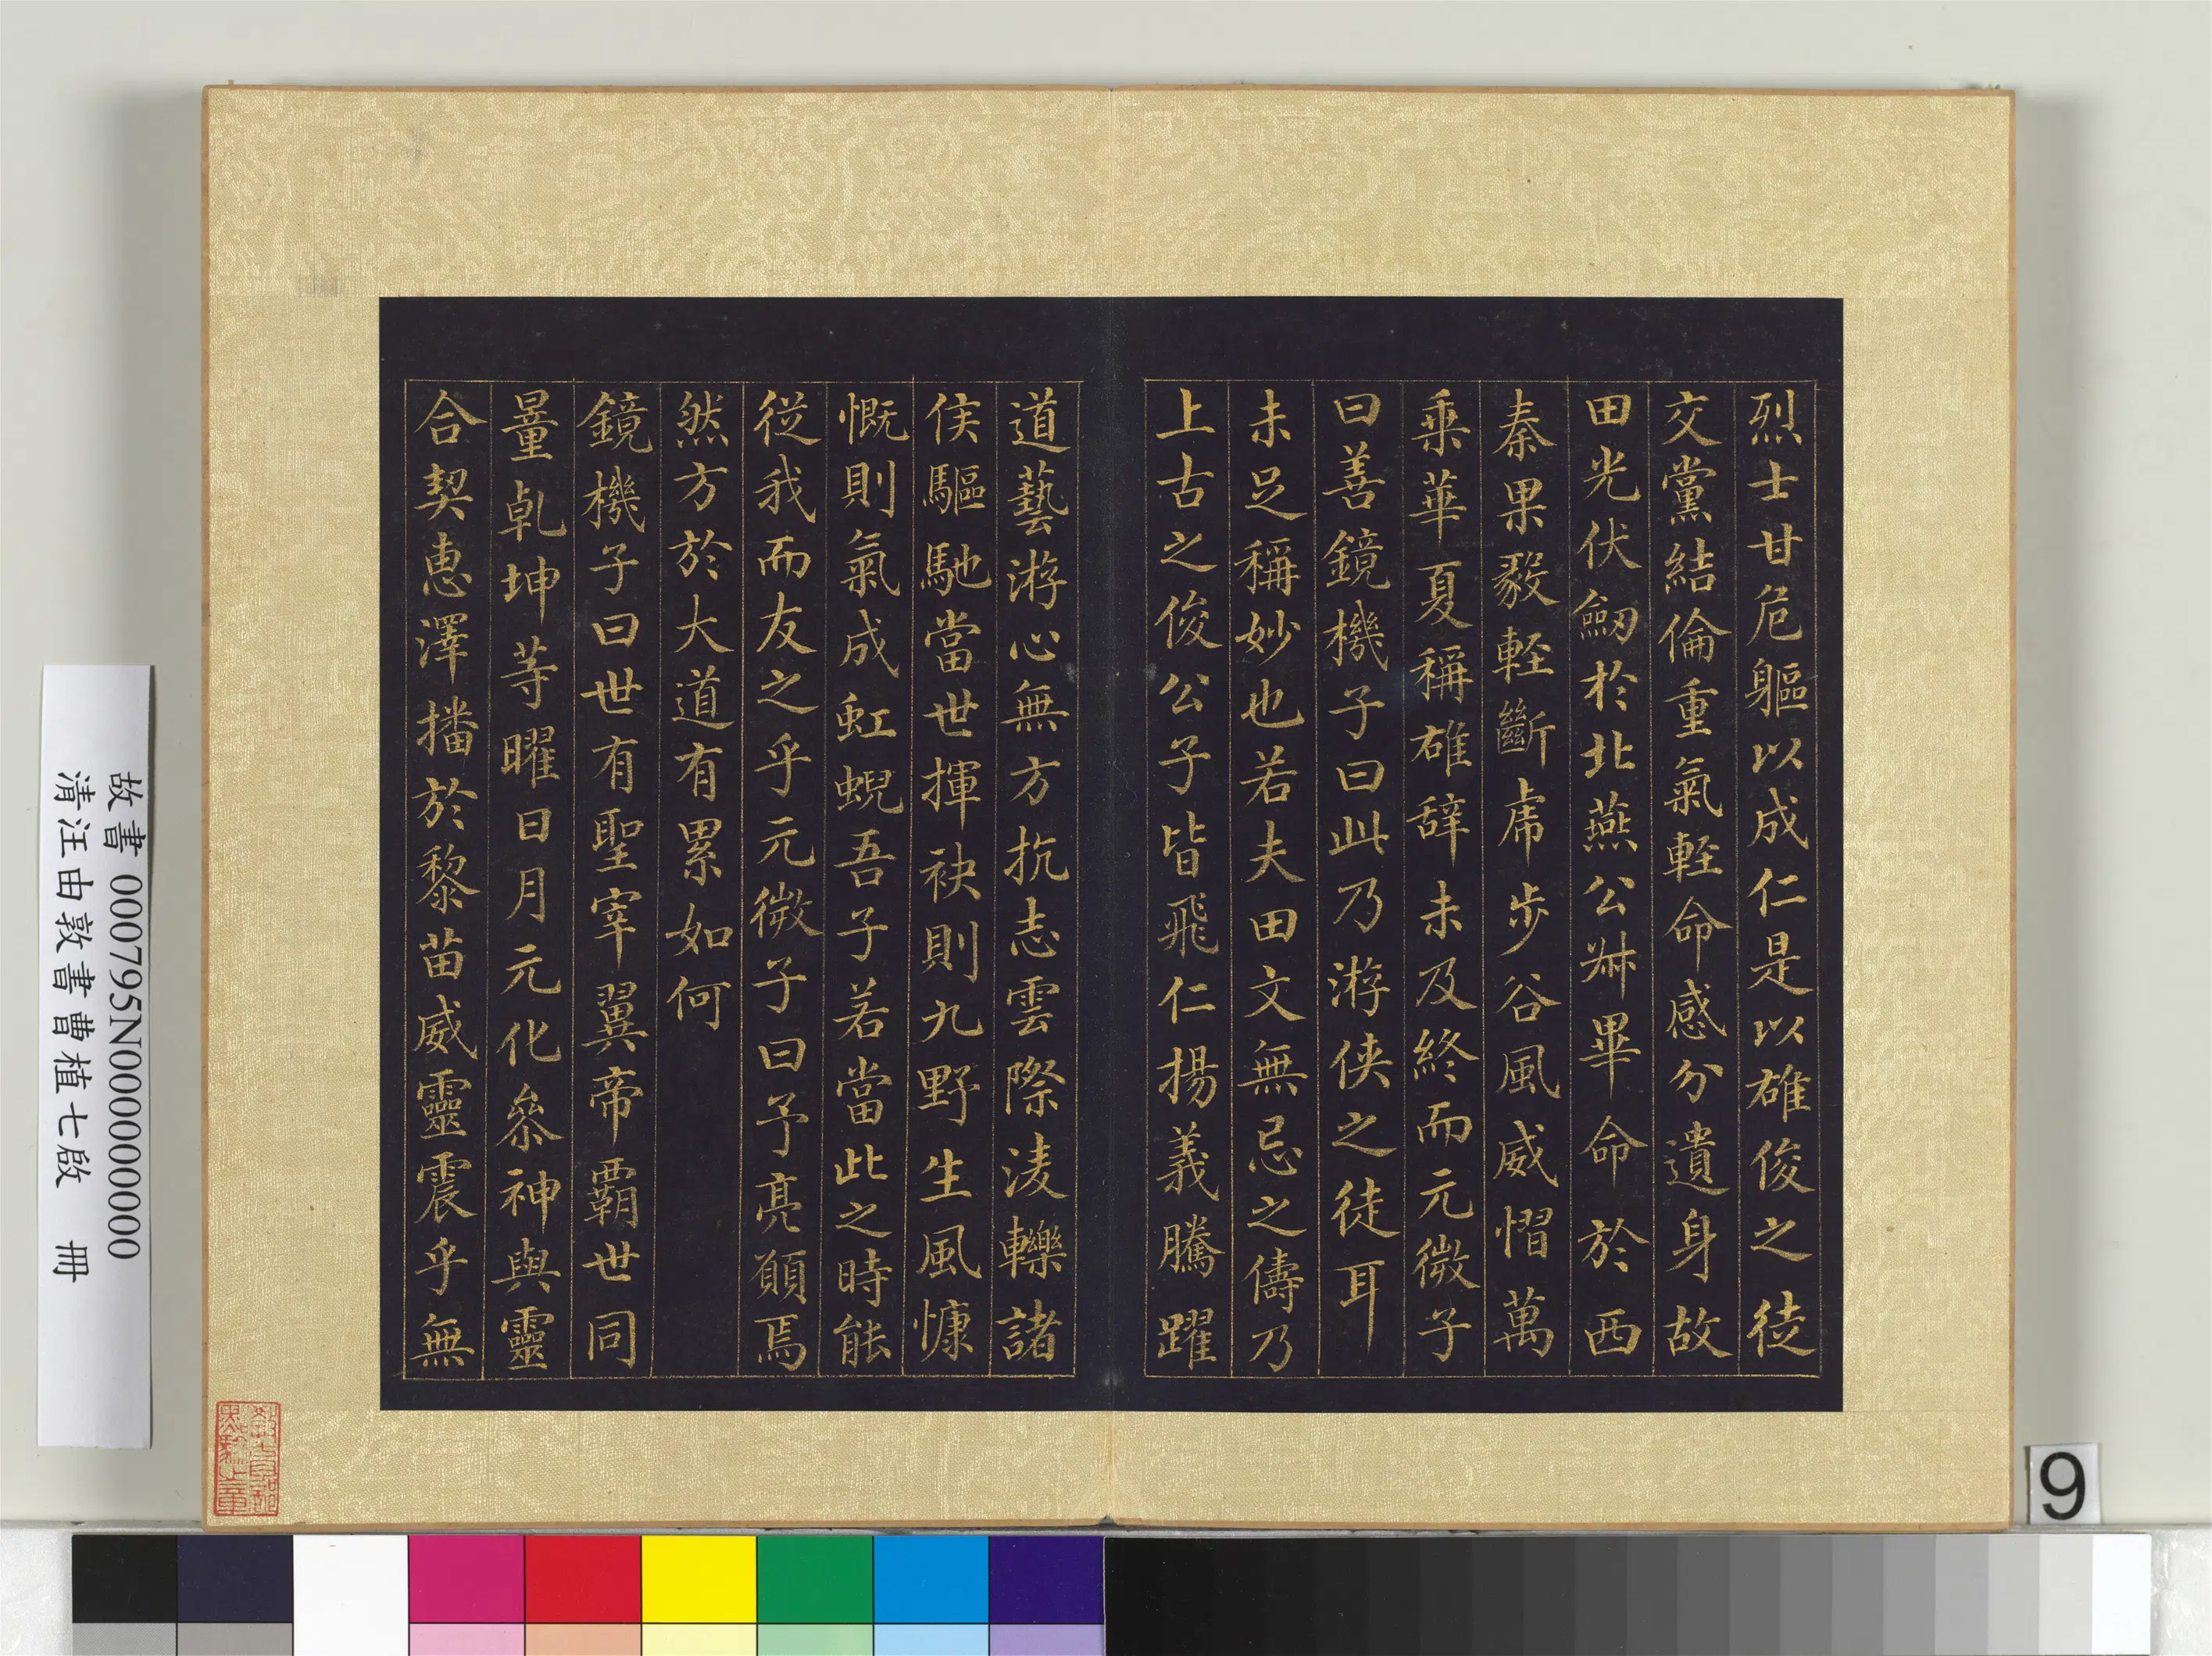 烈士甘危軀以成仁是以雄俊之徒
交黨結倫重氣輕命感分遺身故
田光伏劒於北燕公叔畢命於西
秦果毅輕斷虎步谷風威慴萬
乘華夏稱雄辭未及終而元微子
曰善鏡機子曰此乃游俠之徒耳
未足稱妙也若夫田文無忌之儔乃
上古之俊公子皆飛仁揚義騰躍
道藝游心無方抗志雲際淩轢諸
侯驅馳當世揮袂則九野生風慷
慨則氣成虹蜺吾子若當此之時能
從我而友之乎元微子曰予亮願焉
然方於大道有累如何
鏡機子曰世有聖宰翼帝霸世同
量乾坤等曜日月元化參神與靈
合契惠澤播於黎苗威靈震乎無
故書 000795N000000000
清汪由敦書曹植七啟 冊
9